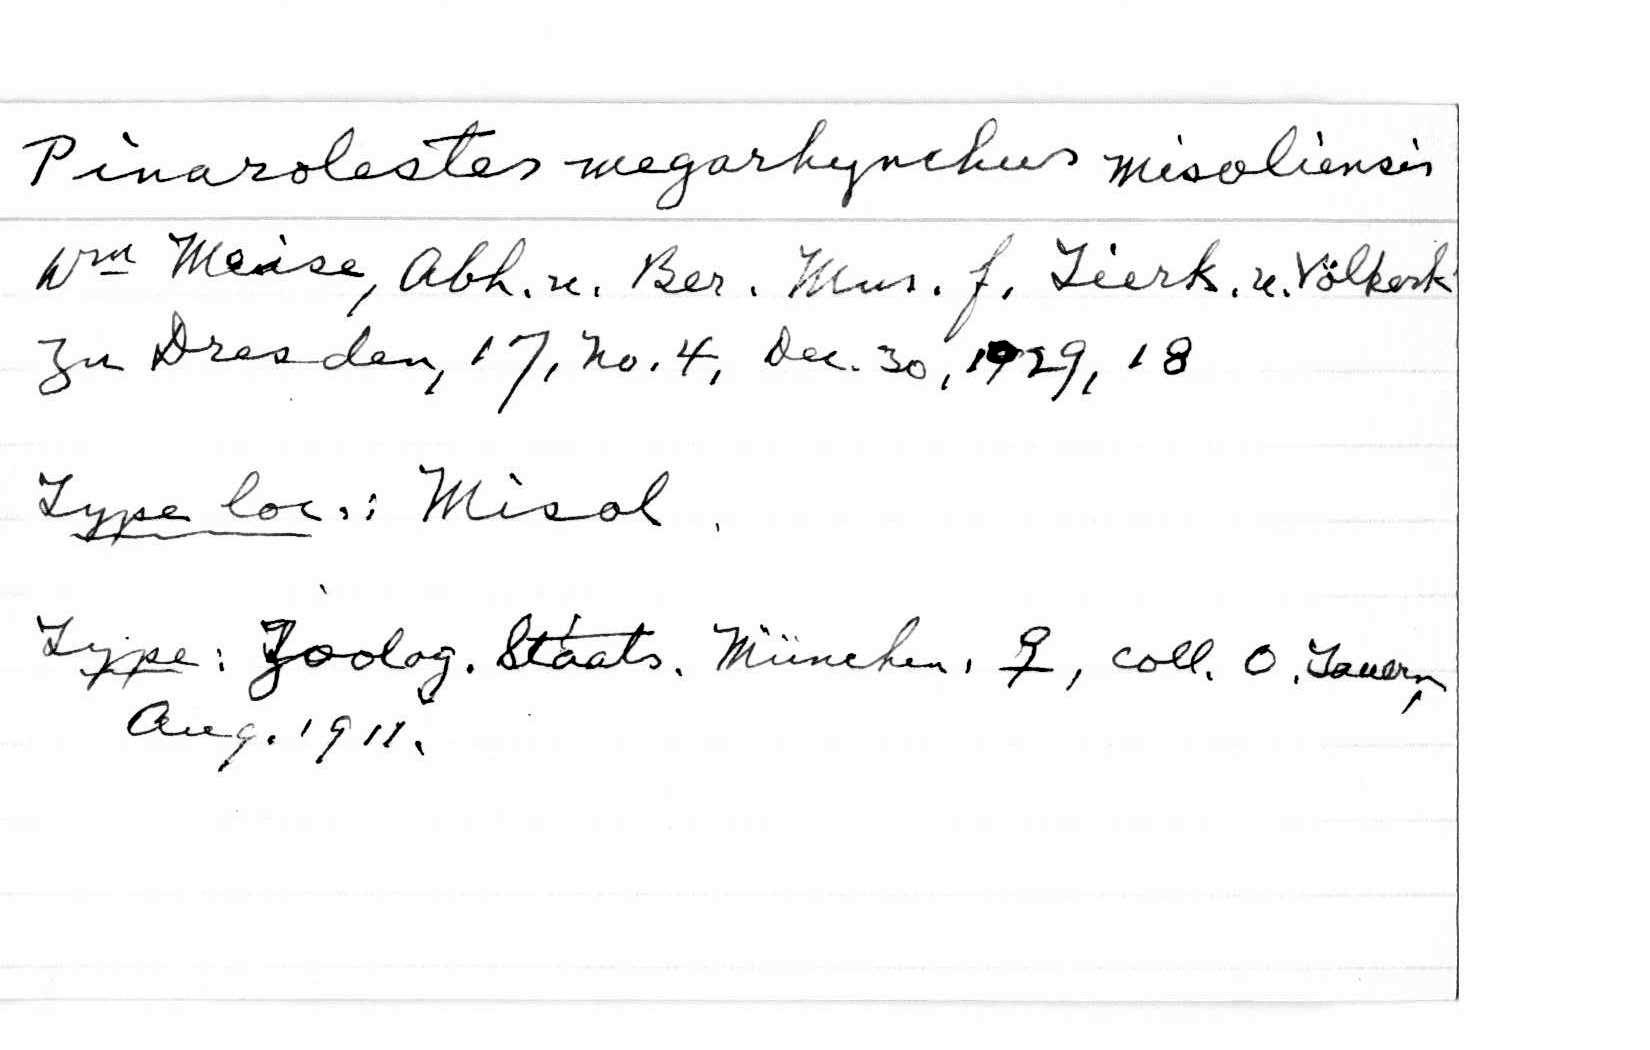 Pinarolestes megarhynchus misoliensis
Wm Meise, Abh. u. Ber. Mus. f. Tierk. u. Völkerk
zu Dresden, 17, no. 4, Dec. 30, 1929, 18
Type loc.: Misol.
Type: Zoolog. Staats. München. ♀, coll. O. Tauern,
Aug. 1911.